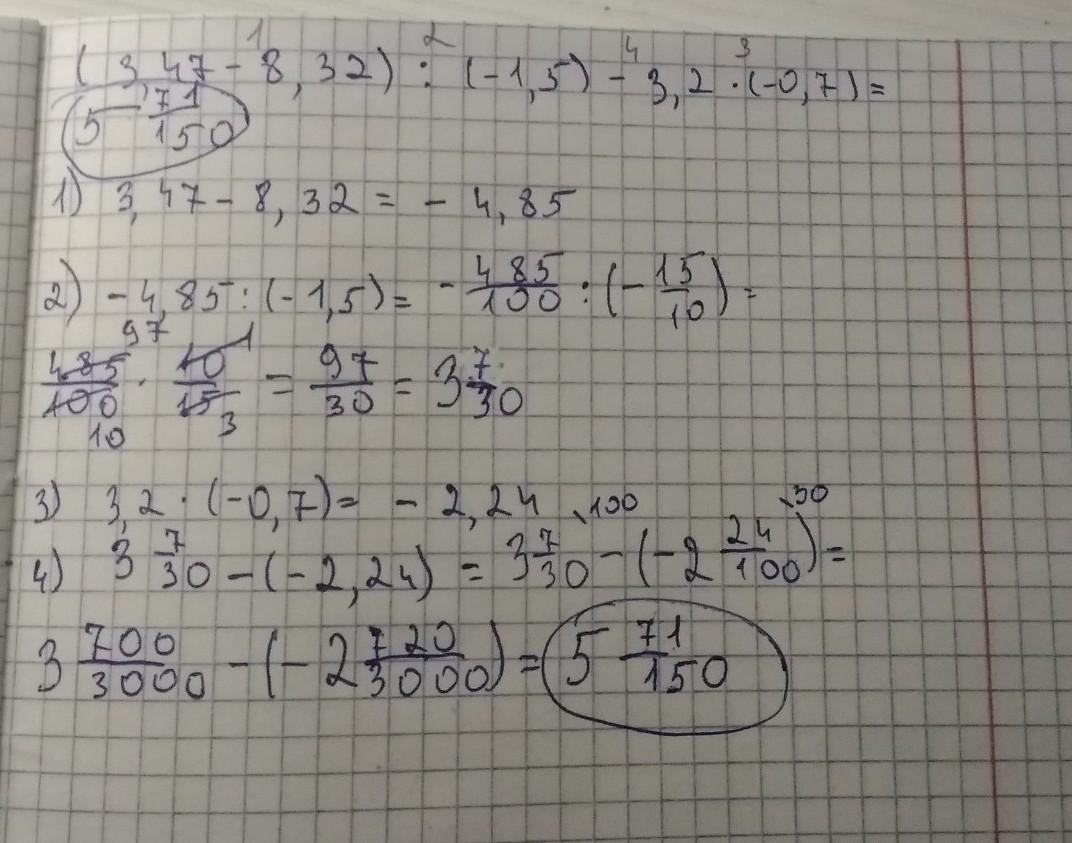 1 2 4 3
(3,47 - 8,32) : (-1,5) - 3,2 · (-0,7) =
5 71/150
1) 3,47 - 8,32 = - 4,85
2) - 4,85 : (-1,5) = - 485/100 : (- 15/10) =
97 1
485/100 · 10/15 = 97/30 = 3 7/30
10 3
3) 3,2 · (-0,7) = - 2,24
\100 \30
4) 3 7/30 - (- 2,24) = 3 7/30 - (-2 24/100) =
3 700/3000 - (- 2 720/3000) = 5 71/150